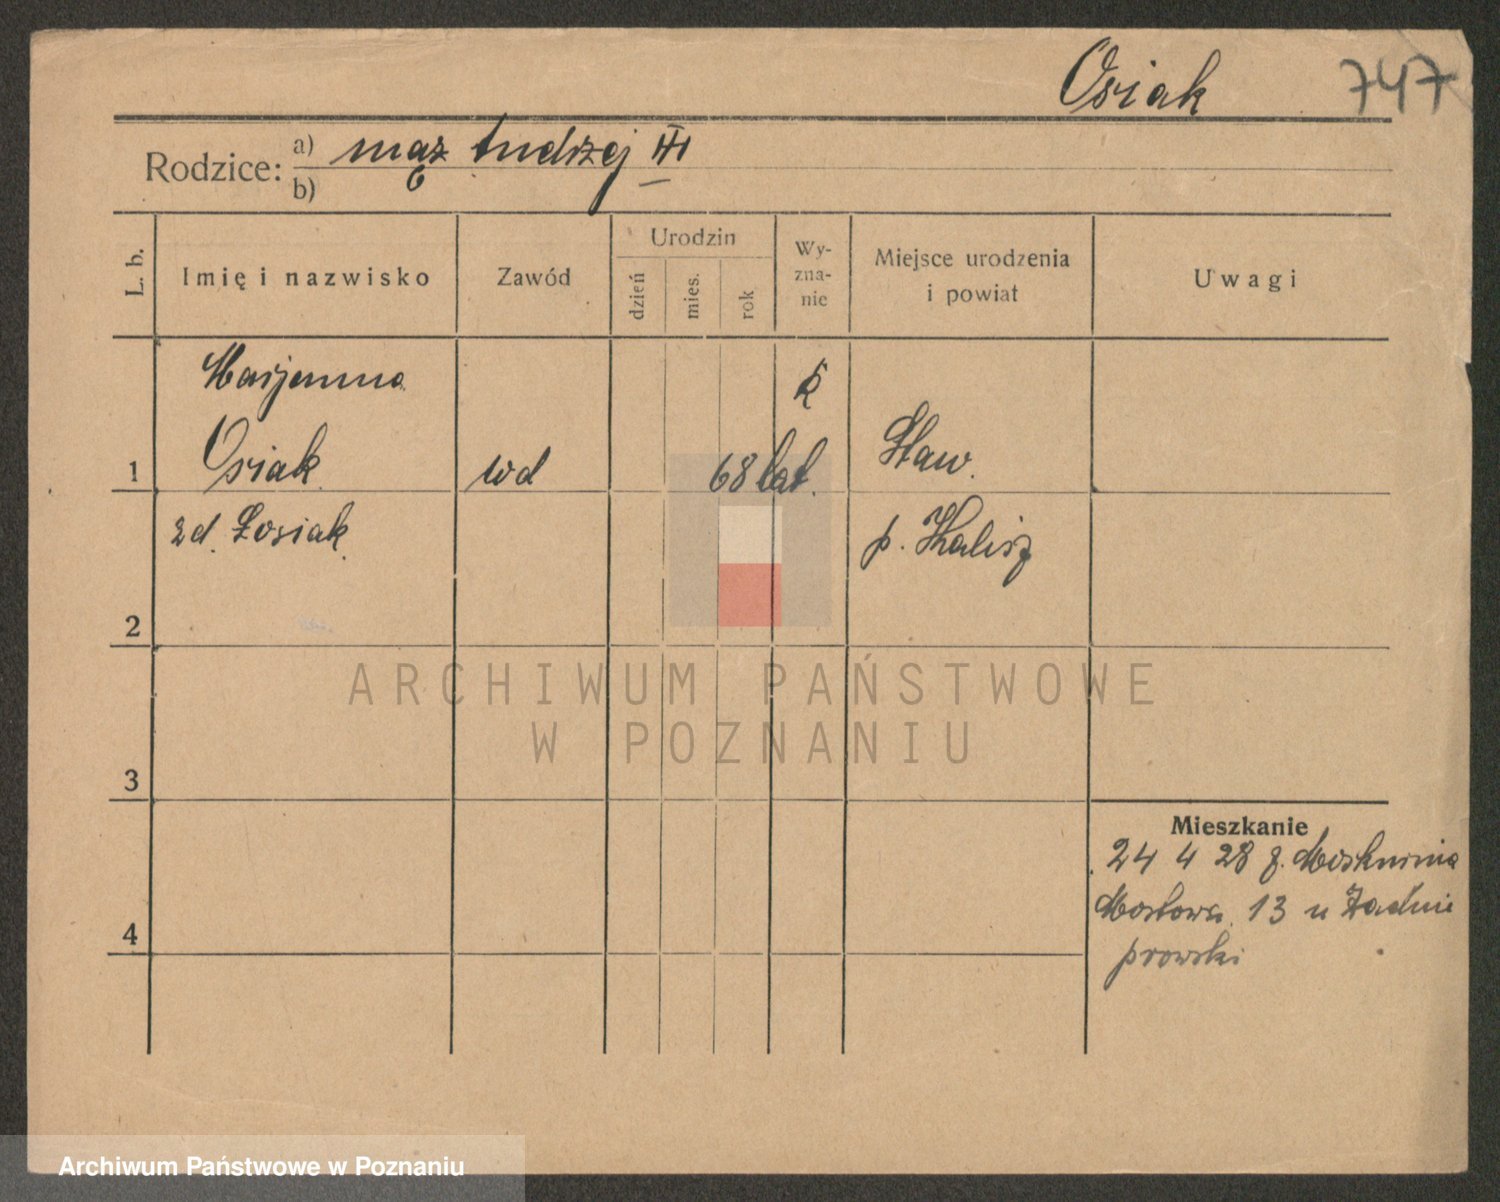 Osiak 747
Rodzice: a) mąż Andrzej III
b)
L. b. Imię i nazwisko Zawód Urodzin dzień mies. rok Wy-zna-nie Miejsce urodzenia i powiat Uwagi
Marjanna k
1 Osiak wd 68 lat. Staw
zd. Łosiak p. Kalisz
2
3
Mieszkanie
24 4 28 z. Moskurnia
Mostowa 13 u Zadnie
prowski
4
ARCHIWUM PAŃSTWOWE
W POZNANIU
Archiwum Państwowe w Poznaniu